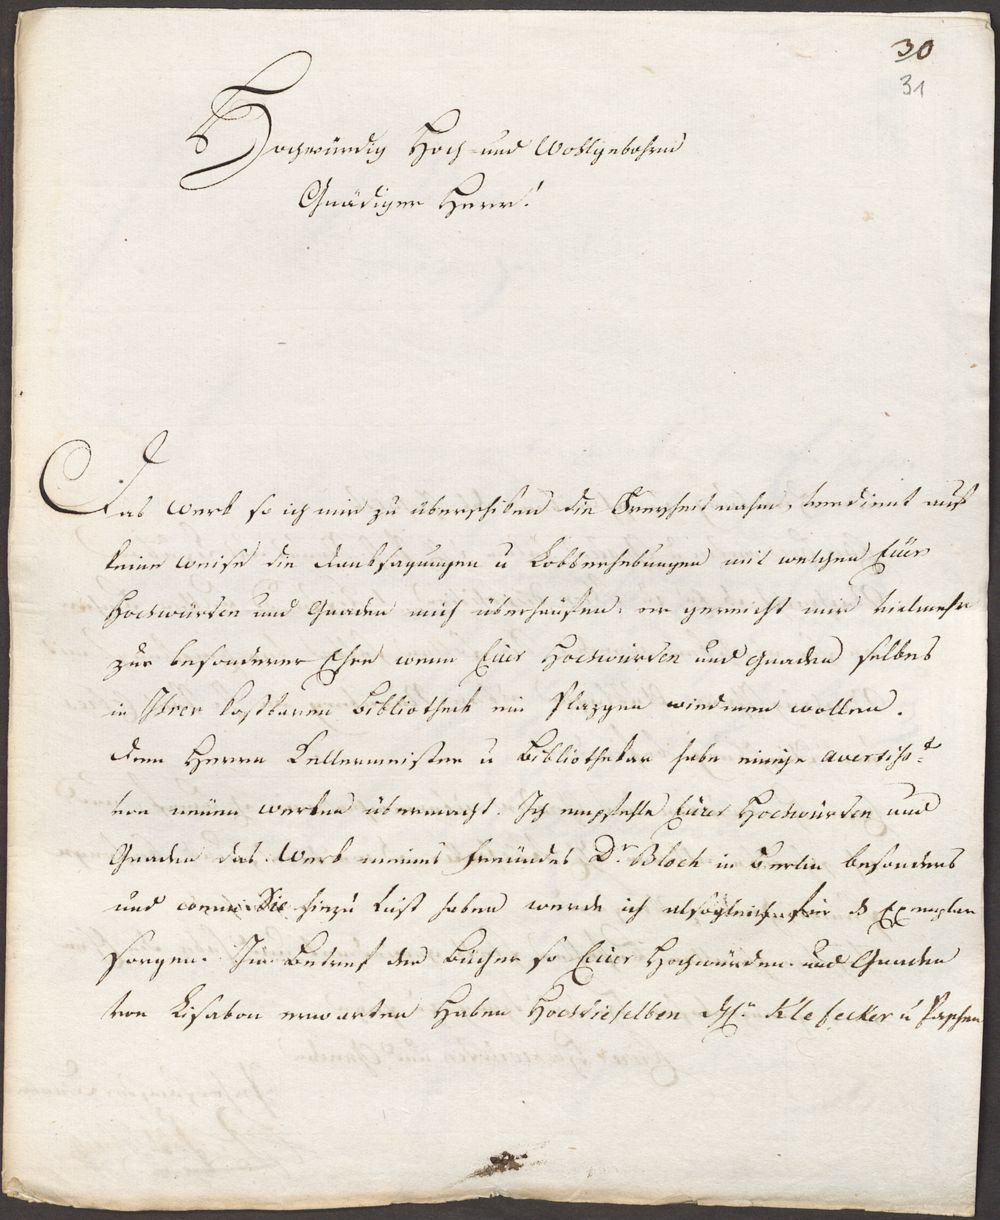 30
31
Hochwürdig Hoch und Wohlgebohrnd
Gnädiger Herr!
Das Werk so ich mir zu überschiken die Freyheit nahm, verdient auf
keine weise die danksagungen u Lobserhebungen mit welchen Eüer
Hochwürden und Gnaden mich überhäufen. er gereicht mir vielmehr
zur besonderer Ehre wenn Eüer Hochwürden und Gnaden selbes
in Ihrer kostbaren Bibliotheck ein Pläzgen wiedmen wollen.
dem Herrn Kellermeister u Bibliothekar habe einige
von neüen werken übermacht. Ich empfehle Eürer Hochwürden und
Gnaden das Werk meines freündes Dr. Bloch in Berlin besonders
und wenn Sie hiezu Lust haben werde ich alsogleich für Exemplar
sorgen. Im Betref der Bücher so Eüer Hochwürden und Gnaden
von Lisabon erwarten Haben Hochdieselben Hn. Klefecker u